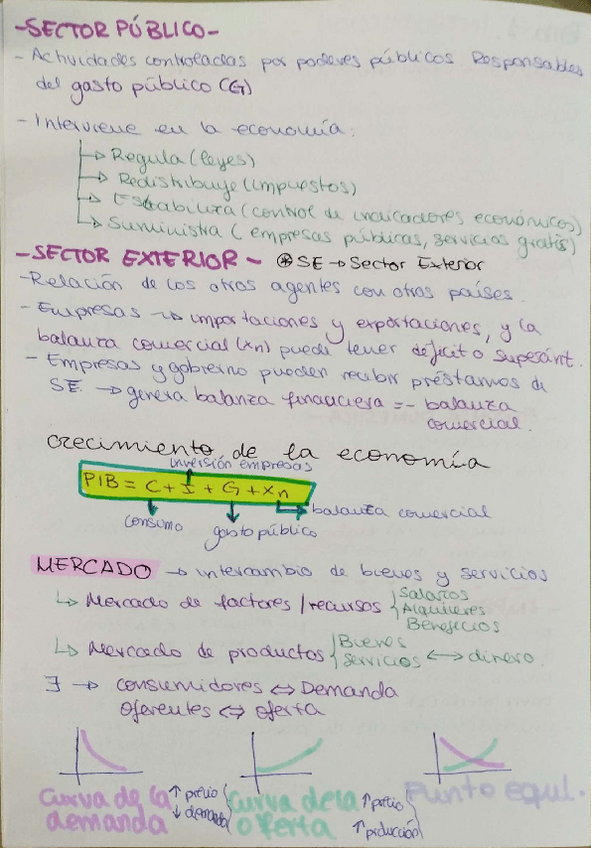 -SECTOR PÚBLICO-
- Actividades controladas por poderes públicos. Responsables
del gasto público (G)
- Interviene en la economía:
↳ Regula (leyes)
↳ Redistribuye (impuestos)
↳ Estabiliza (control de indicadores económicos)
↳ Suministra (empresas públicas, servicios gratis)
-SECTOR EXTERIOR- * SE → Sector Exterior
-Relación de los otros agentes con otros países.
- Empresas → importaciones y exportaciones, y la
balanza comercial (xn) puede tener déficit o superánt.
- Empresas y gobierno pueden recibir préstamos de
SE. → genera balanza financiera = - balanza
comercial.
crecimiento de la economía
inversión empresas
PIB = C + I + G + Xn
→ balanza comercial
consumo
gasto público
MERCADO → intercambio de bienes y servicios
↳ Mercado de factores / recursos { Salarios
Alquileres
Beneficios
↳ Mercado de productos { Bienes
Servicios ↔ dinero.
∃ → consumidores ⇔ Demanda
Oferentes ⇔ oferta
Curva de la demanda
↑ precio
↓ demanda
Curva de la oferta
↑ precio
↑ producción
Punto equl.